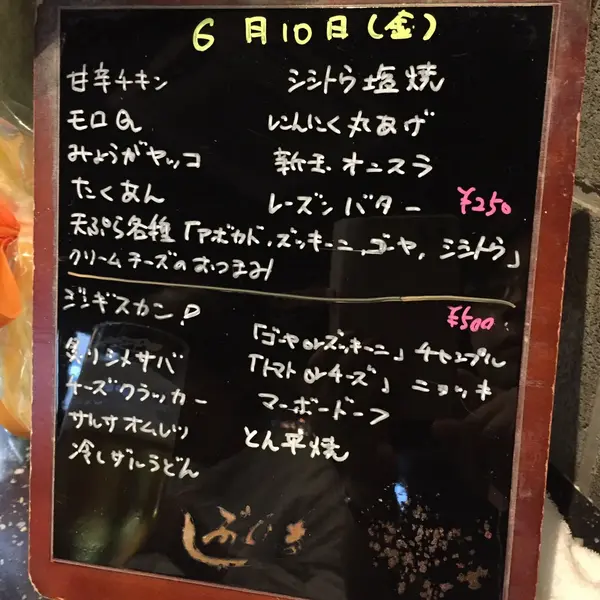 6月10日(金)
甘辛チキン
シシトウ塩焼
モロQ
にんにく丸あげ
みょうがヤッコ
新玉オニスラ
たくあん
レーズンバター ¥250
天ぷら各種「アボカド、ズッキーニ、ゴーヤ、シシトウ」
クリームチーズのおつまみ
ジンギスカン!
¥500
炙りシメサバ
「ゴーヤorズッキーニ」チャンプル
チーズクラッカー
「トマトorチーズ」ニョッキ
サルサオムレツ
マーボードーフ
冷しザルうどん
とん平焼